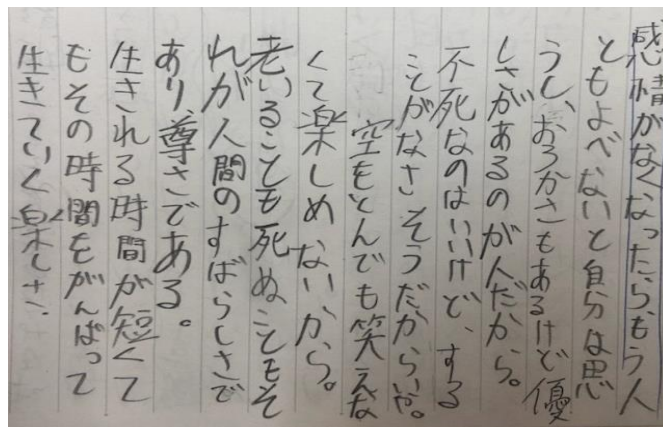 感情がなくなったらもう人
ともよべないと自分は思
うし、おろかさもあるけど優
しさがあるのが人だから。
不死なのはいいけど、する
ことがなさそうだからいや。
空をとんでも笑えな
くて楽しめないから。
老いることも死ぬこともそ
れが人間のすばらしさで
あり、尊さである。
生きれる時間が短くて
もその時間をがんばって
生きていく楽しさ。